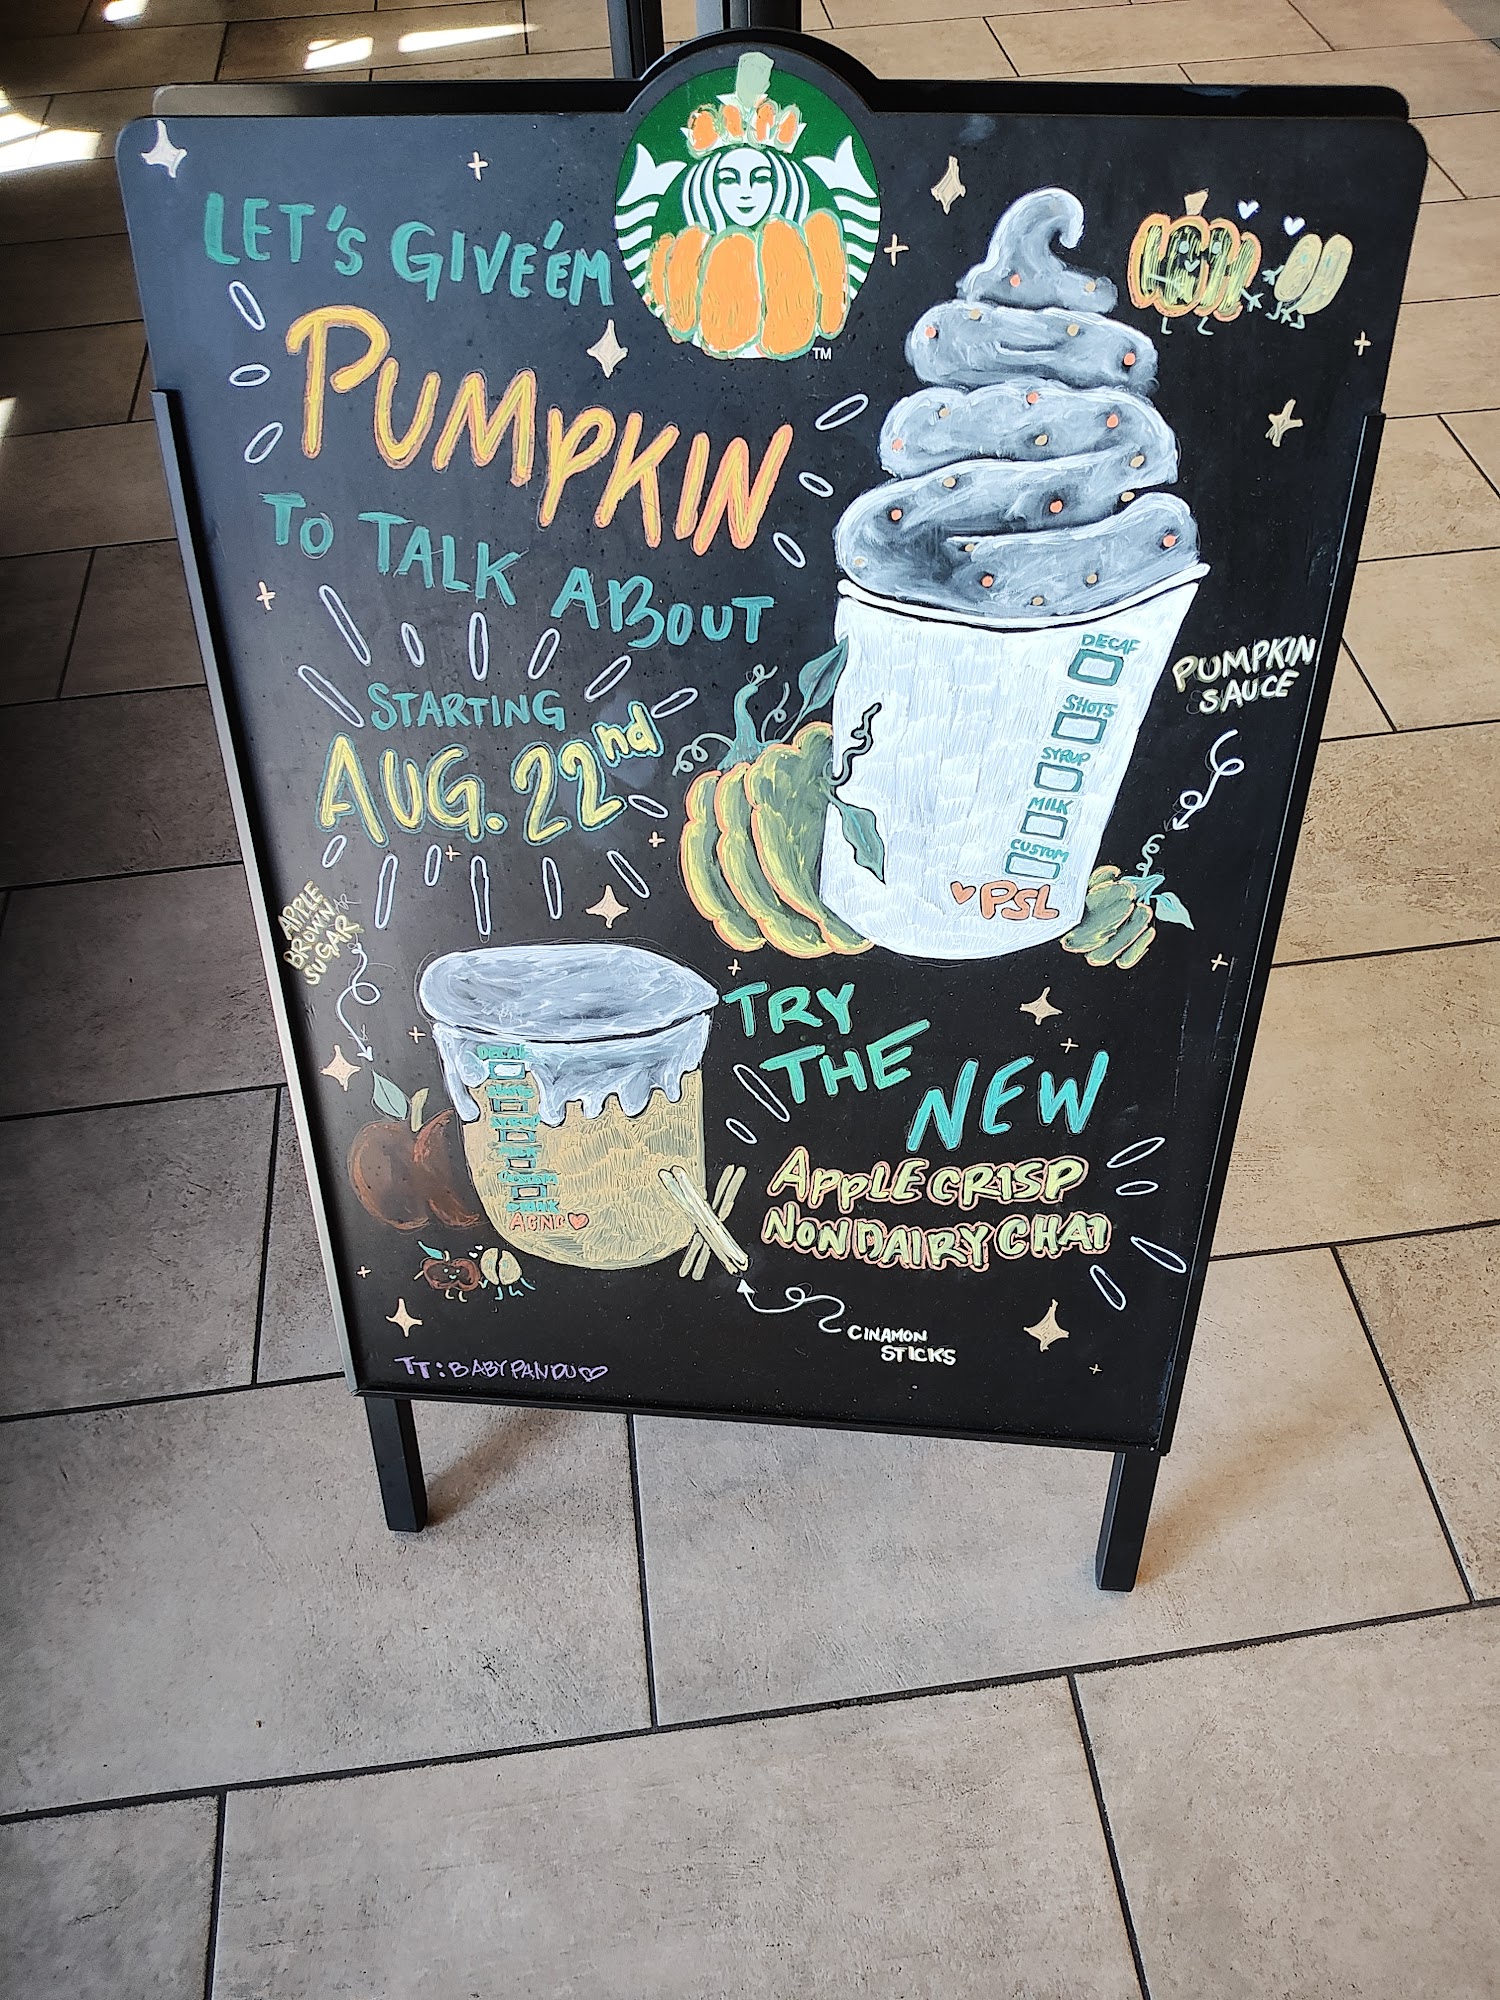 LET'S GIVE'EM
PUMPKIN
TO TALK ABOUT
STARTING
AUG. 22nd
TM
DECAF
SHOTS
SYRUP
MILK
CUSTOM
PSL
PUMPKIN
SAUCE
APPLE
BROWN
SUGAR
DECAF
TRY
THE
NEW
APPLE CRISP
NONDAIRY CHAI
CINAMON
STICKS
TT: BABYPANDU